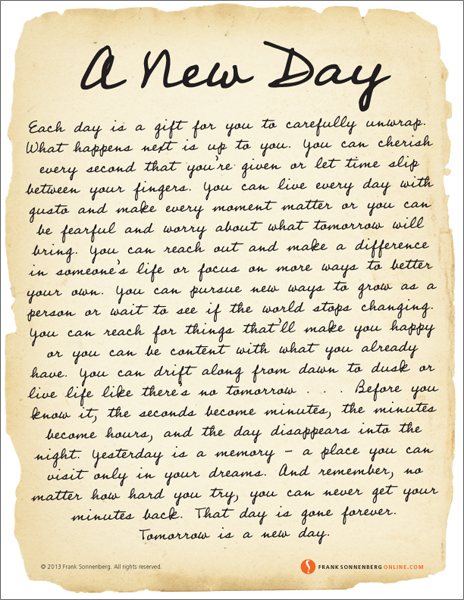 A New Day
Each day is a gift for you to carefully unwrap.
What happens next is up to you. You can cherish
every second that you're given or let time slip
between your fingers. You can live every day with
gusto and make every moment matter or you can
be fearful and worry about what tomorrow will
bring. You can reach out and make a difference
in someone's life or focus on more ways to better
your own. You can pursue new ways to grow as a
person or wait to see if the world stops changing.
You can reach for things that'll make you happy
or you can be content with what you already
have. You can drift along from dawn to dusk or
live life like there's no tomorrow . . . . Before you
know it, the seconds become minutes, the minutes
become hours, and the day disappears into the
night. Yesterday is a memory – a place you can
visit only in your dreams. And remember, no
matter how hard you try, you can never get your
minutes back. That day is gone forever.
Tomorrow is a new day.
© 2013 Frank Sonnenberg. All rights reserved.
FRANKSONNENBERGONLINE.COM